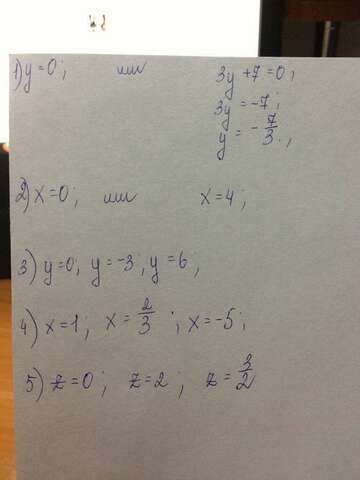 1) y=0; или 3y+7=0;
3y=-7;
y=-7/3;
2) x=0; или x=4;
3) y=0; y=-3; y=6;
4) x=1; x=2/3; x=-5;
5) z=0; z=2; z=3/2